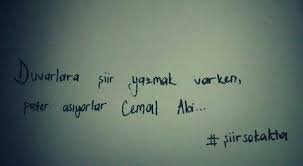 Duvarlara şiir yazmak varken,
poster asıyorlar Cemal Abi...
# şiirsokakta